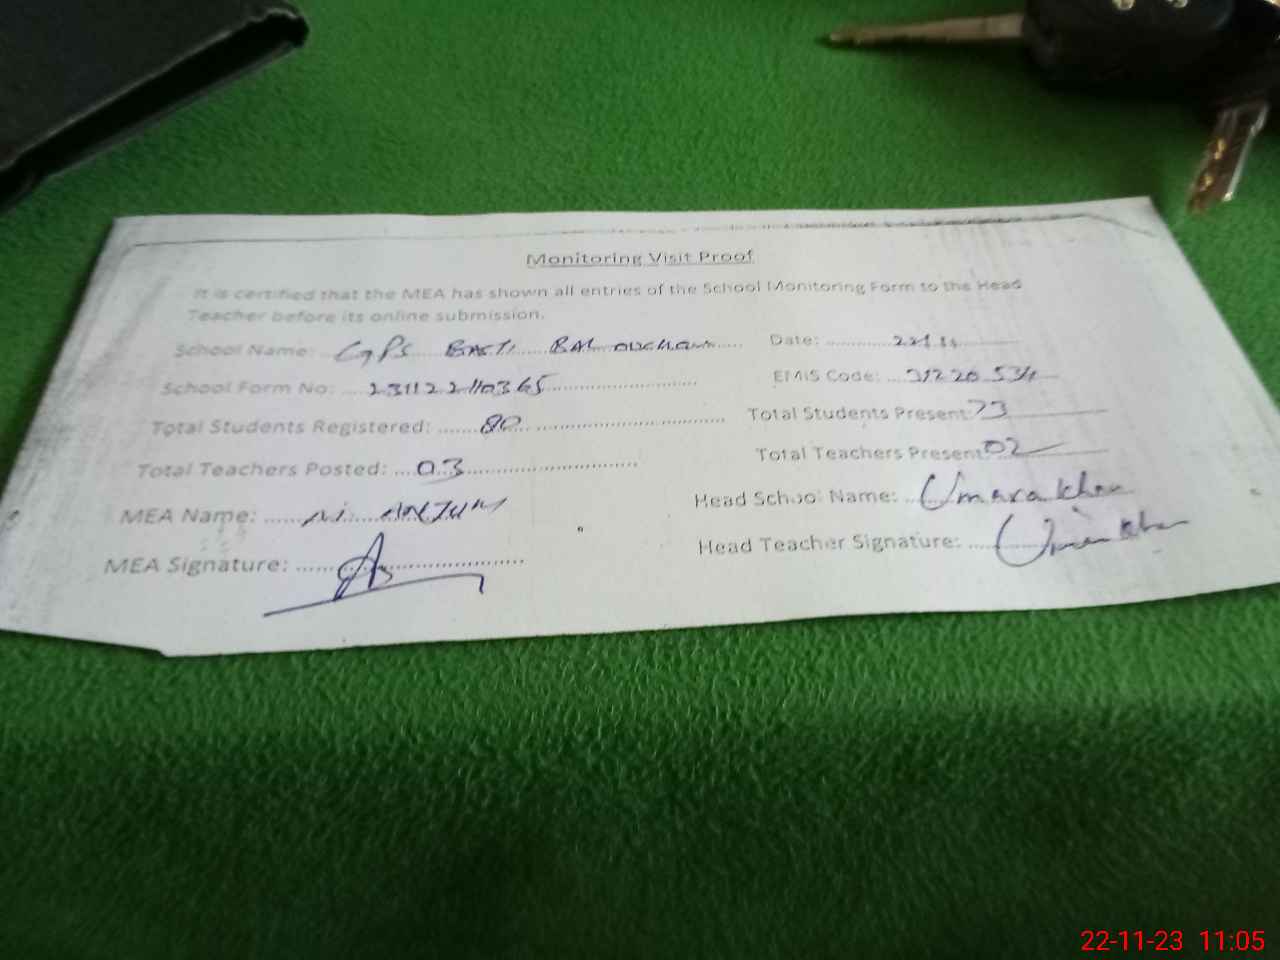 Monitoring Visit Proof
It is certified that the MEA has shown all entries of the School Monitoring Form to the Head
Teacher before its online submission.
School Name: GPS BASTI Date: 22 11
School Form No: 231122110365 EMIS Code: 31220534
Total Students Registered: 80 Total Students Present: 73
Total Teachers Posted: 03 Total Teachers Present: 02
MEA Name: Head School Name: Umara khan
MEA Signature: Head Teacher Signature:
22-11-23 11:05